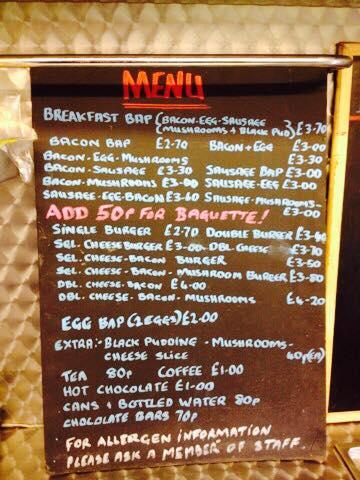 MENU
BREAKFAST BAP (BACON-EGG-SAUSAGE
(MUSHROOMS + BLACK PUD) £3-70
BACON BAP £2-70 BACON + EGG £3-00
BACON-EGG-MUSHROOMS £3-30
BACON-SAUSAGE £3-30 SAUSAGE BAP £3-00
BACON-MUSHROOMS £3-00 SAUSAGE-EGG £3-00
SAUSAGE-EGG-BACON £3-60 SAUSAGE-MUSHROOMS-
ADD 50P FOR BAGUETTE! £3-00
SINGLE BURGER £2-70 DOUBLE BURGER
SGL. CHEESEBURGER £3-00 DBL. CHEESE £3-70
SGL. CHEESE-BACON BURGER
SGL. CHEESE-BACON-MUSHROOM BURGER
DBL. CHEESE-BACON £4-00
DBL. CHEESE-BACON-MUSHROOMS £4-20
EGG BAP (2EGGS) £2-00
EXTRA:- BLACK PUDDING - MUSHROOMS-
CHEESE SLICE 40P(EA)
TEA 80P COFFEE £1-00
HOT CHOCOLATE £1-00
CANS + BOTTLED WATER 80P
CHOLOLATE BARS 70P
FOR ALLERGEN INFORMATION
PLEASE ASK A MEMBER OF STAFF.